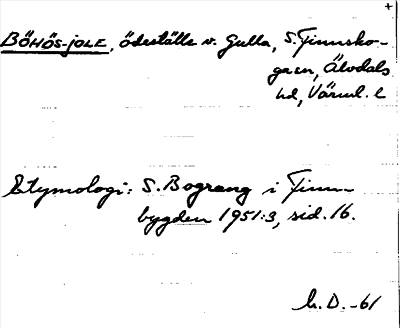 +
BÖHÖS-JOLE, ödeställe v. Gulla, S. Finnsko-
gen, Älvdals
hd, Värml. l
Etymologi: S. Bograng i Finn-
bygden 1951:3, sid. 16.
h. D. -61